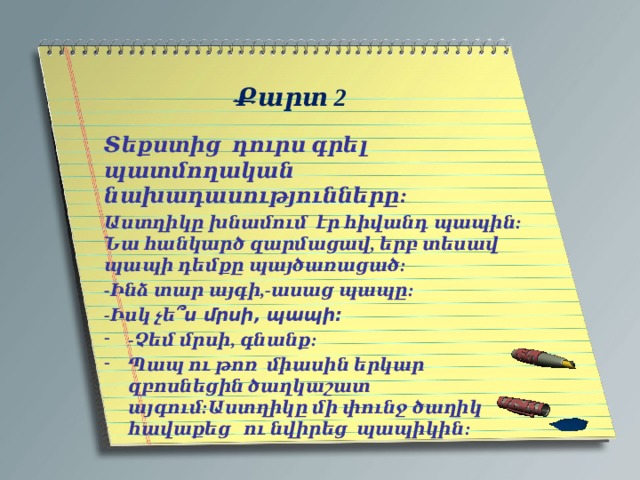 Քարտ 2
Տեքստից դուրս գրել
պատմողական
նախադասությունները:
Աստղիկը խնամում էր հիվանդ պապին:
Նա հանկարծ զարմացավ, երբ տեսավ
պապի դեմքը պայծառացած:
-Ինձ տար այգի,-ասաց պապը:
-Իսկ չե՞ս մրսի, պապի:
- -Չեմ մրսի, գնանք:
- Պապ ու թոռ միասին երկար
զբոսնեցին ծաղկաշատ
այգում:Աստղիկը մի փունջ ծաղիկ
հավաքեց ու նվիրեց պապիկին: